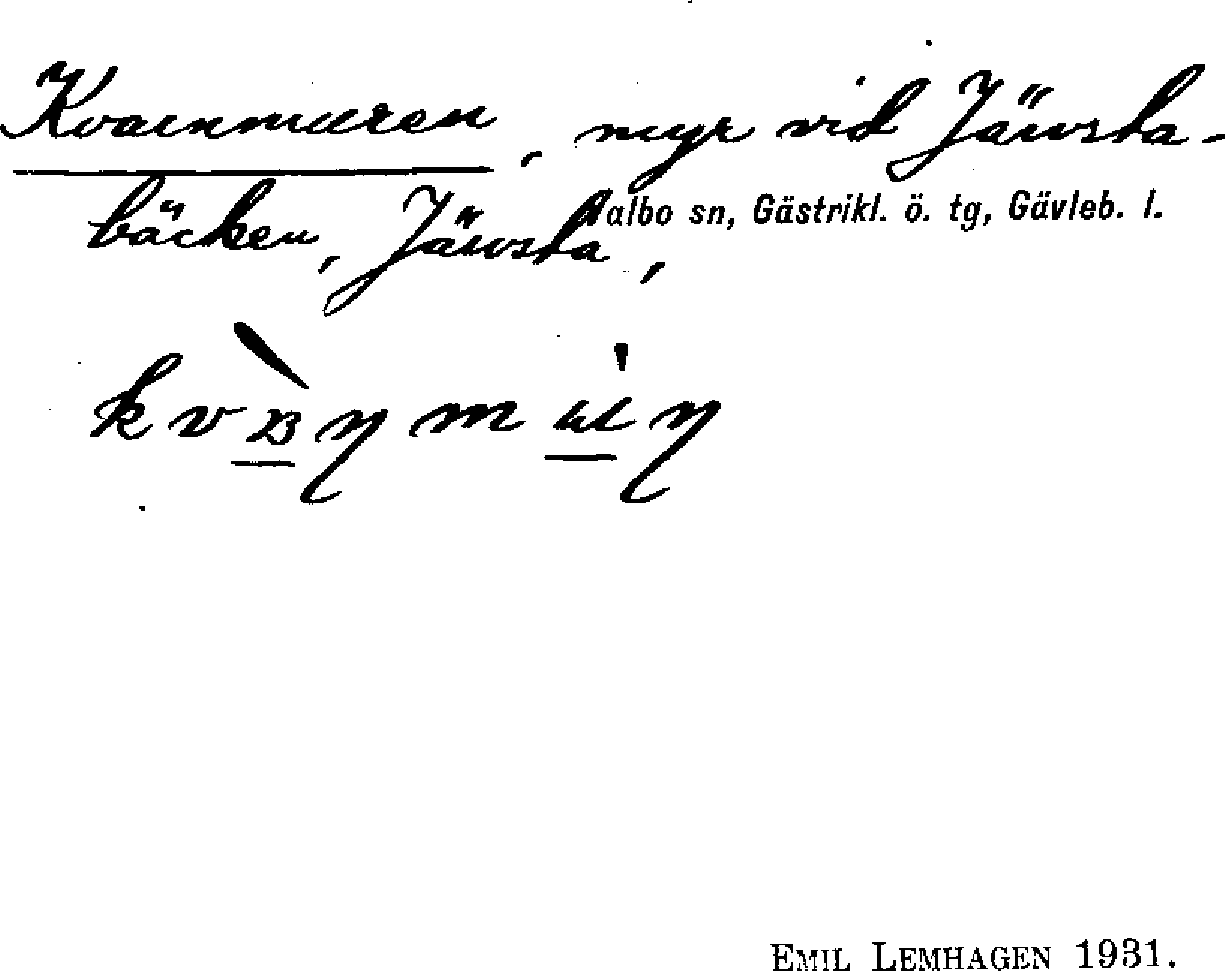 Kvarnmuren, myr vid Järvsta-
Valbo sn, Gästrikl. ö. tg, Gävleb. l.
bäcken, Järvsta,
EMIL LEMHAGEN 1931.